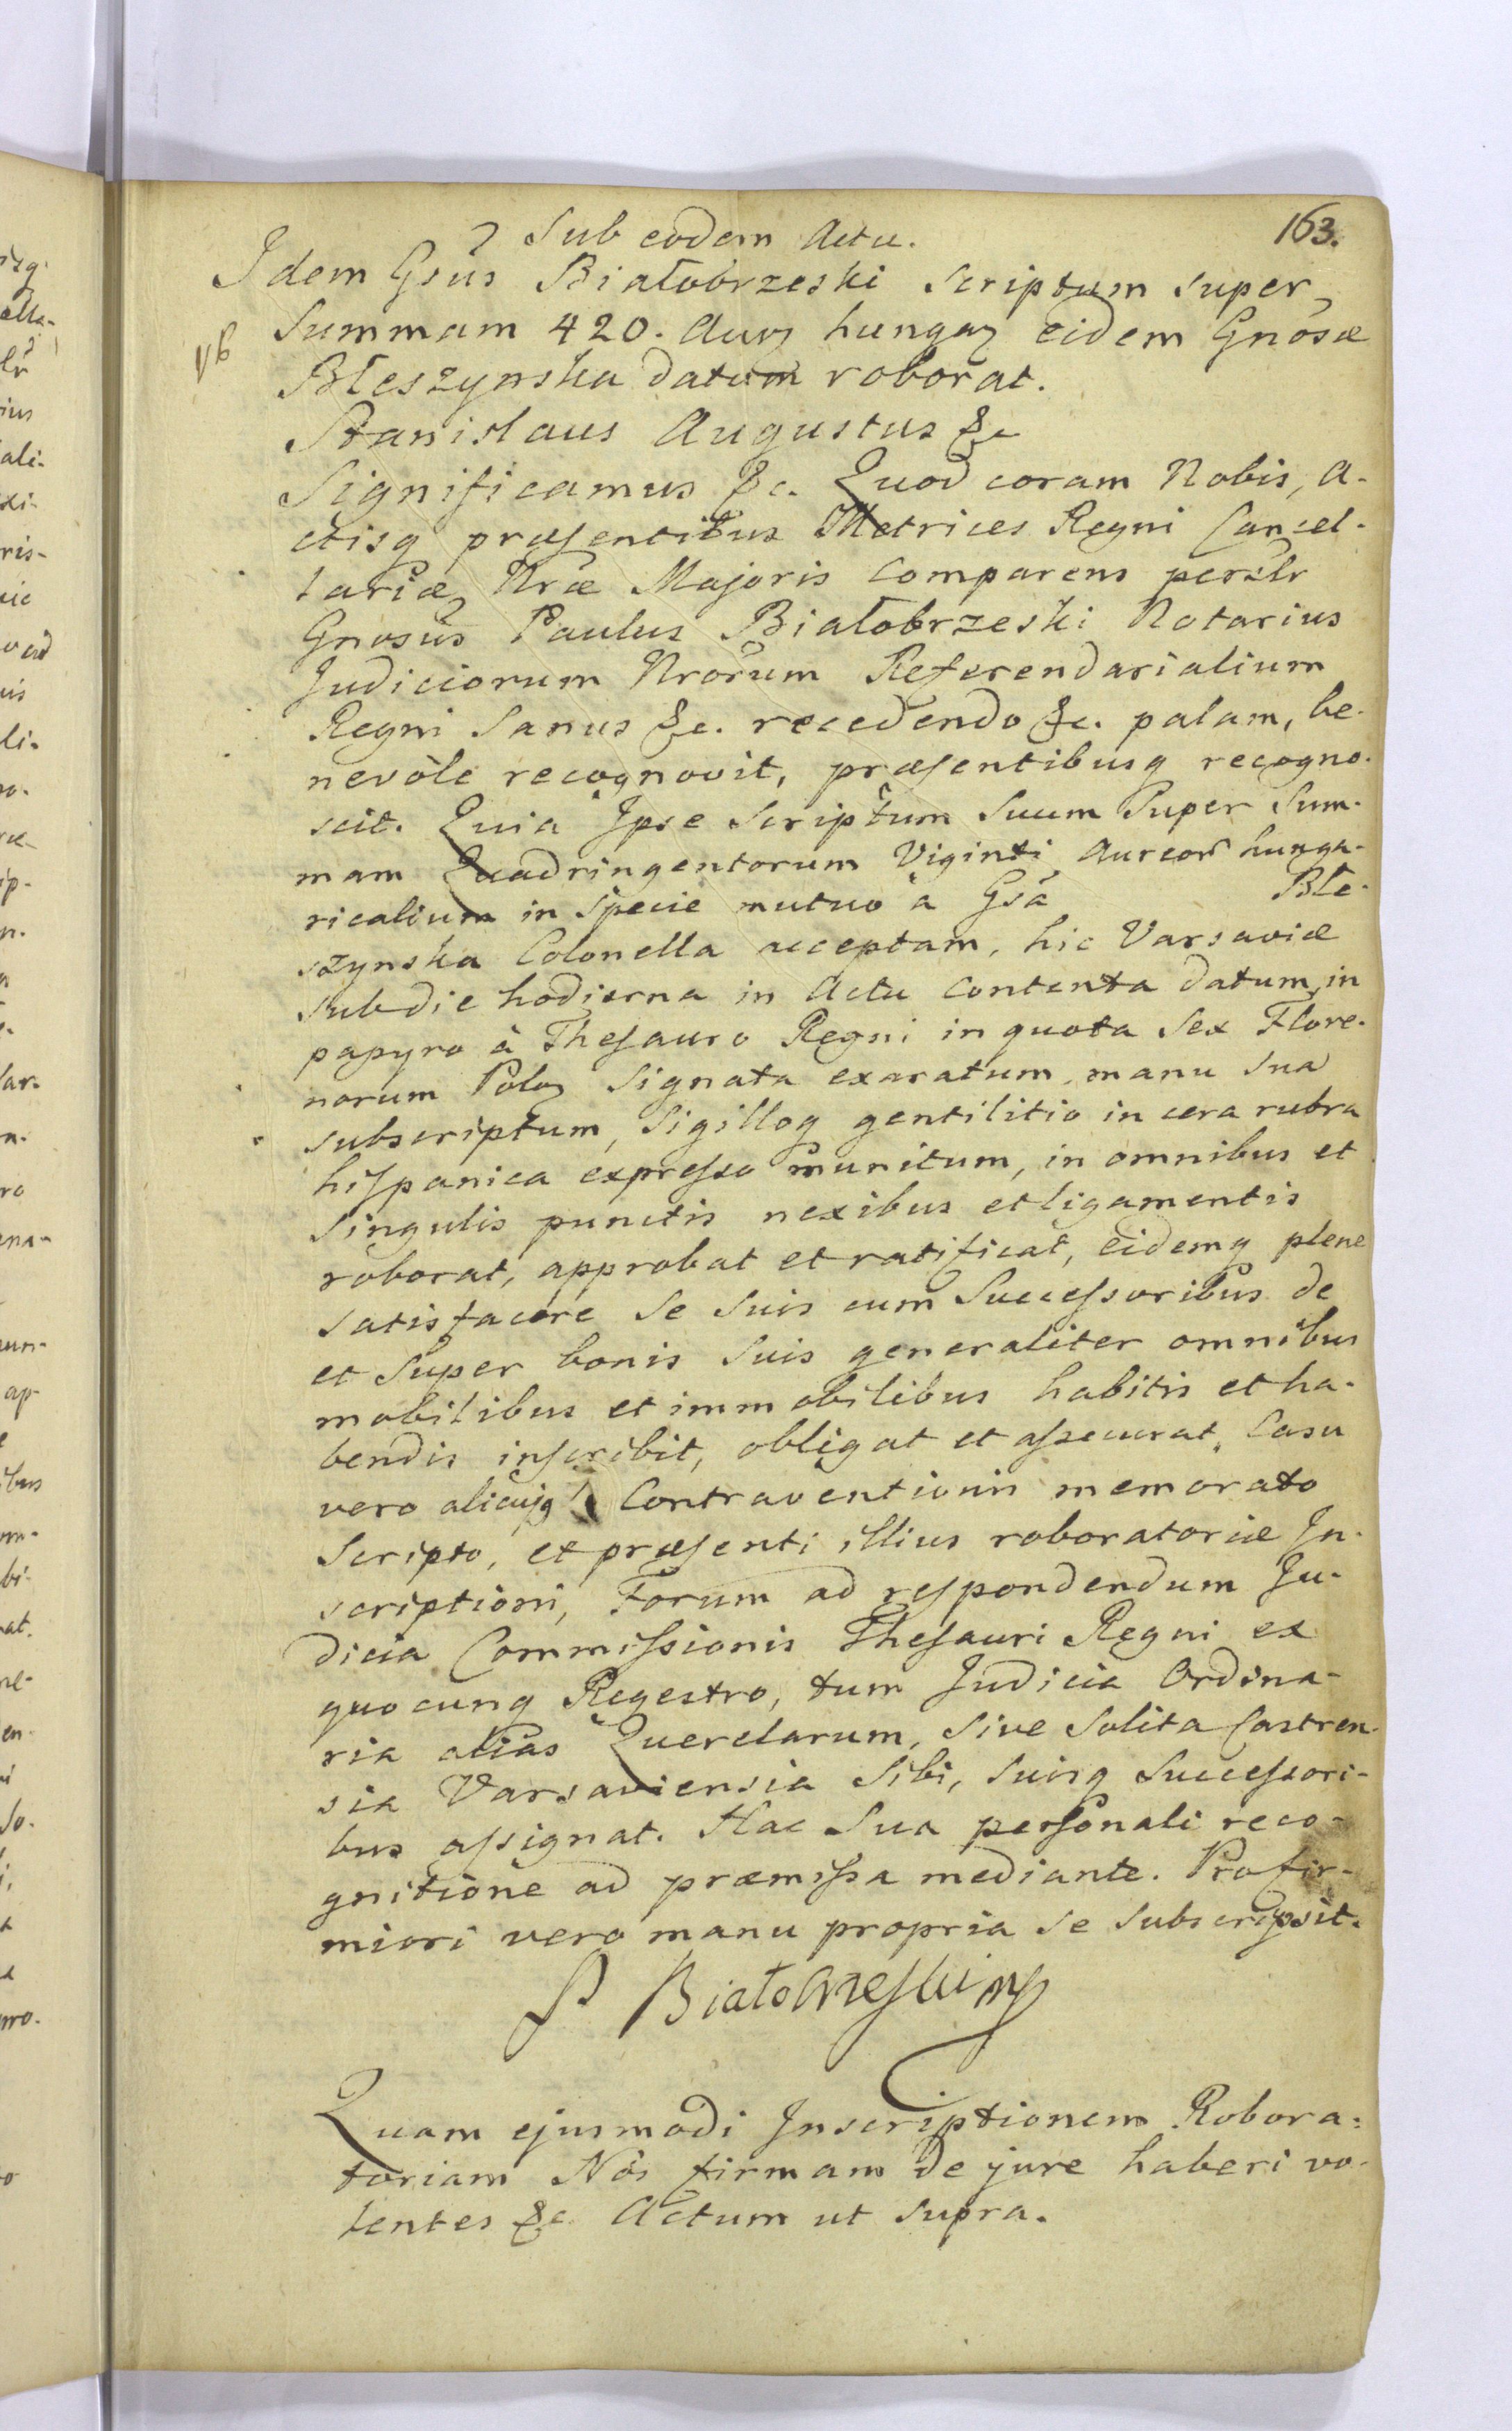 163.
Sub eodem Actu.
Idem Gsus Białobrzeski Scriptum super
Summam 420. Aurꝫ hungaꝫ eidem Gnosæ
Błeszynska datum roborat.
Stanislaus Augustus &c
Significamus &c. Quod coram Nobis, A-
ctisq præsentibus Metrices Regni Cancel-
lariæ Nræ Majoris Comparens persłr
Gnosus Paulus Białobrzeski Notarius
Judiciorum Nrorum Referendarialium
Regni Sanus &c. recedendo &c. palam, be-
nevole recognovit, præsentibusq recogno-
scit. Quia Ipse Scriptum Suum Super Sum-
mam Quadringentorum Viginti Aureor hunga-
ricalium in Specie mutuo à Gsa Błe-
szynska Colonella acceptam, hic Varsaviæ
sub die hodierna in Actu Contenta datum, in
papyro à Thesauro Regni in quota Sex Flore-
norum Poloꝫ Signata exaratum, manu Sua
subscriptum, Sigilloq gentilitio in cera rubra
hispanica expresso munitum, in omnibus et
Singulis punctis nexibus et ligamentis
roborat, approbat et ratificat, eidemq plene
satisfacere Se Suis cum Successoribus de
et Super bonis Suis generaliter omnibus
mobilibus et immobilibus habitis et ha-
bendis inscribit, obligat et assecurat. Casu
vero alicujq Contraventionis memorato
Scripto, et præsenti illius roboratoriæ In-
scriptioni, Forum ad respondendum Ju-
dicia Commissionis Thesauri Regni ex
quocunq Regestro, tum Judicia Ordina-
ria alias Querelarum, Sive Solita Castren-
sia Varsaviensia Sibi, Suisq Successori-
bus assignat. Hac Sua personali reco-
gnitione ad præmissa mediante. Pro fir-
miori vero manu propria Se Subscripsit.
P Białobrzeski mp
Quam ejusmodi Inscriptionem Robora-
toriam Nos firmam de jure haberi vo-
lentes &c Actum ut supra.